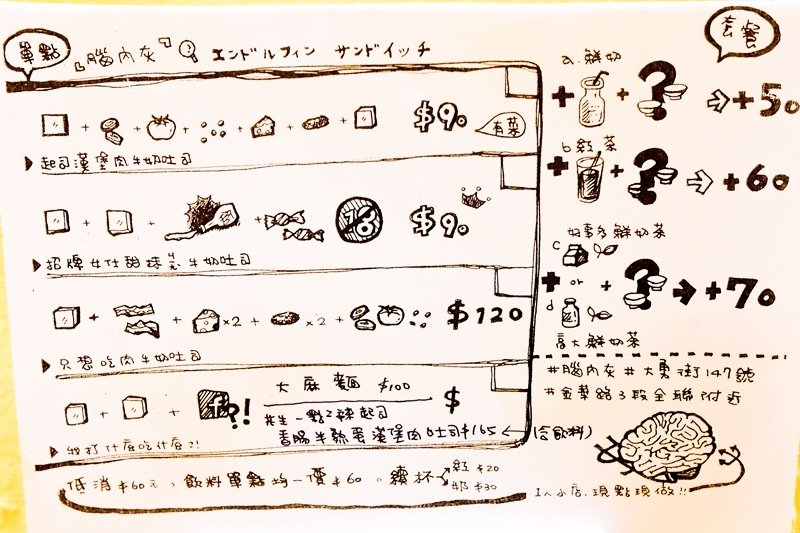 單點
『腦內灰』 エンドルフィン サンドイッチ
套餐
$90
有菜
起司漢堡肉牛奶吐司
18
$90
招牌女仕甜抹ㄋㄞ牛奶吐司
×2 + ×2 + $120
只想吃肉牛奶吐司
?!
大麻麵 $100
$
先生一點ㄦ辣起司
香腸半熟蛋漢堡肉吐司$165 ← (含飲料)
我打什麼吃什麼?!
低消$60元,飲料單點均一價$60。續杯
紅$20
奶$30
a. 鮮奶
+ + ? ⇨ +50
b. 紅茶
+ + ? ⇨ +60
好事多鮮奶茶
c
+ or + ? → +70
d
高大鮮奶茶
#腦內灰 #大勇街147號
#金華路3段全聯附近
1人小店.現點現做!!